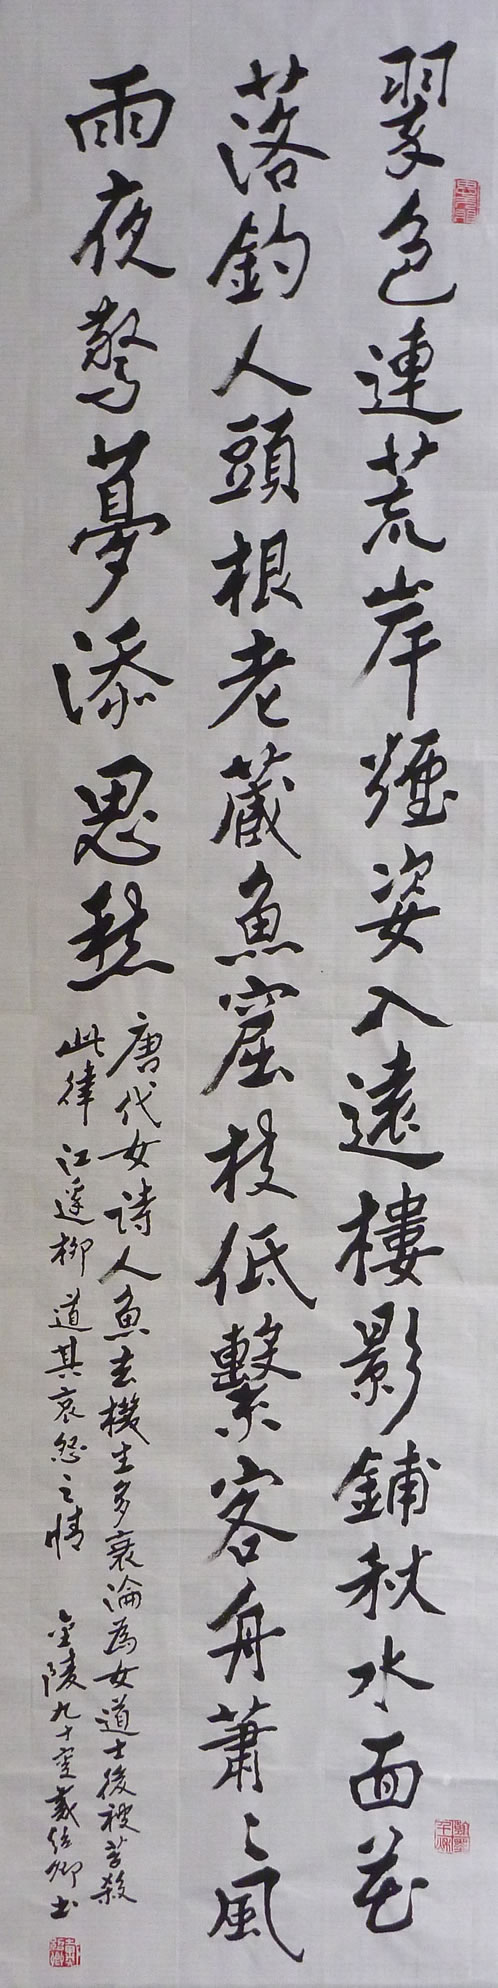 翠色連荒岸煙姿入遠樓影鋪秋水面花
落釣人頭根老藏魚窟枝低繫客舟蕭々風
雨夜驚夢添思愁
唐代女詩人魚玄機生多衰淪為女道士後被苦殺
此律江邊柳道其哀怨之情 金陵九十叟戴 卿书